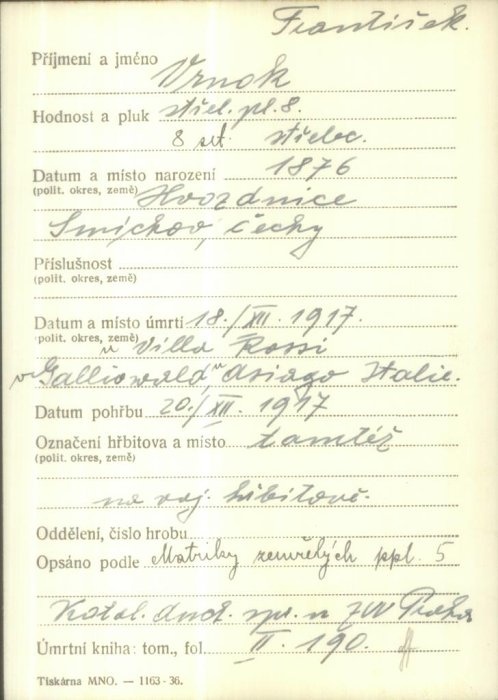 František.
Příjmení a jméno Vrnok
Hodnost a pluk střel. pl. 8.
8 set. střelec.
Datum a místo narození 1876
(polit. okres, země) Hvozdnice
Smíchov, Čechy
Příslušnost
(polit. okres, země)
Datum a místo úmrtí 18./XII. 1917.
(polit. okres, země) u Villa Rossi
v „Galliowald“ Asiago Italie.
Datum pohřbu 20./XII. 1917
Označení hřbitova a místo tamtéž
(polit. okres, země)
na voj. hřbitově.
Oddělení, číslo hrobu
Opsáno podle Matriky zemřelých ppl. 5
Katol. duch. spr. u ZVV Praha
Úmrtní kniha: tom., fol. II. 190.
Tiskárna MNO. — 1163-36.